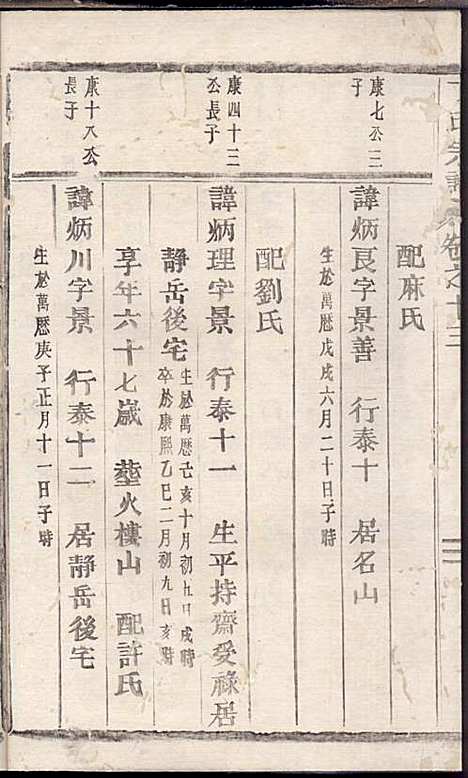 氏宗譜 卷之十三
配麻氏
康七公三
子
諱炳良字景善 行泰十 居名山
生於萬曆戊戌六月二十日子時
配劉氏
康四十三
公長子
諱炳理字景 行泰十一 生平持齋受祿居
靜岳後宅
生於萬曆己亥十月初九日戌時
卒於康熙乙巳二月初九日亥時
享年六十七歲 塟火樓山 配許氏
康十八公
長子
諱炳川字景 行泰十二 居靜岳後宅
生於萬曆庚子正月十一日子時